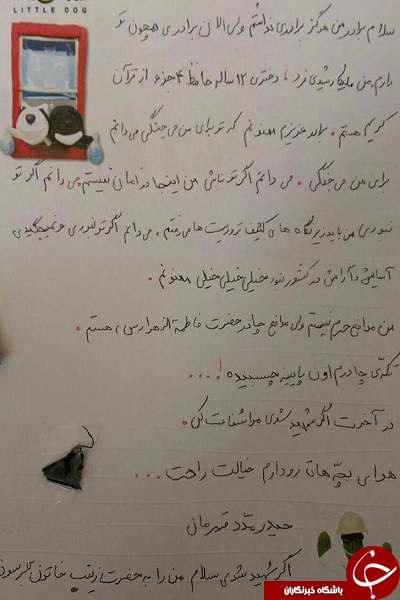 LITTLE DOG
سلام برادر من هرگز برادری نداشتم ولی الان برادری همچون تو
دارم، من ملیکا رشیدی فرد، دختری ۱۲ ساله حافظ ۴ جزء از قرآن
کریم هستم. برادر عزیزم ممنونم که تو برای من می جنگی می دانم
برای من می جنگی. می دانم اگر تو نباشی من اینجا در امان نیستم می دانم اگر تو
نبودی من باید زیر نگاه های کثیف تروریست ها می رفتم. می دانم اگر تو نبودی و نمیجنگیدی
آسایش و آرامش در کشور نبود خیلی خیلی خیلی ممنونم.
من مدافع حرم نیستم ولی مدافع چادر حضرت فاطمة الزهرا (س) هستم.
تکه‌ی چادرم اون پایینه چسبیده!...
در آخرت اگر شهید شدی مرا شفاعت کن.
هوای بچّه هاتن رو دارم خیالت راحت...
حیدر مدد قهرمان
اگر شهید شدی سلام من را به حضرت زینب خاتون برسون
باشگاه خبرنگاران